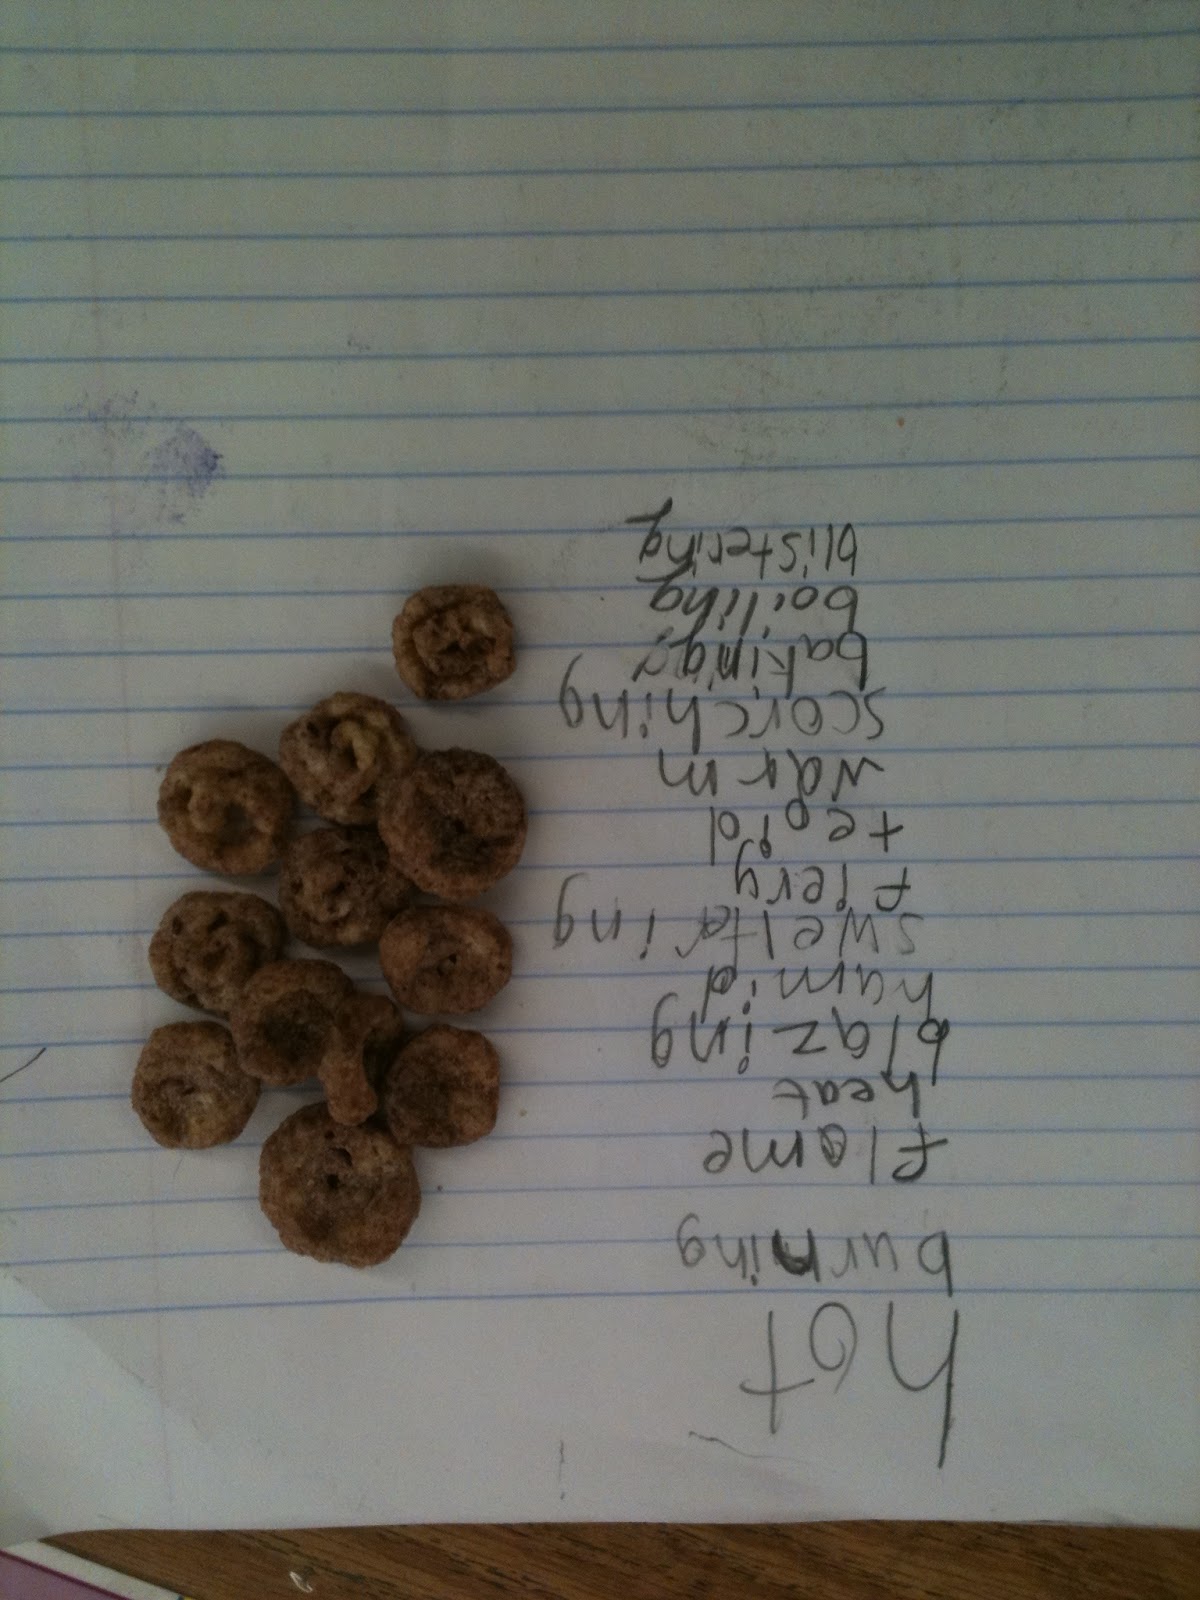 hot
burning
flame
heat
blazing
humid
sweltering
fiery
tepid
warm
scorching
baking
boiling
blistering